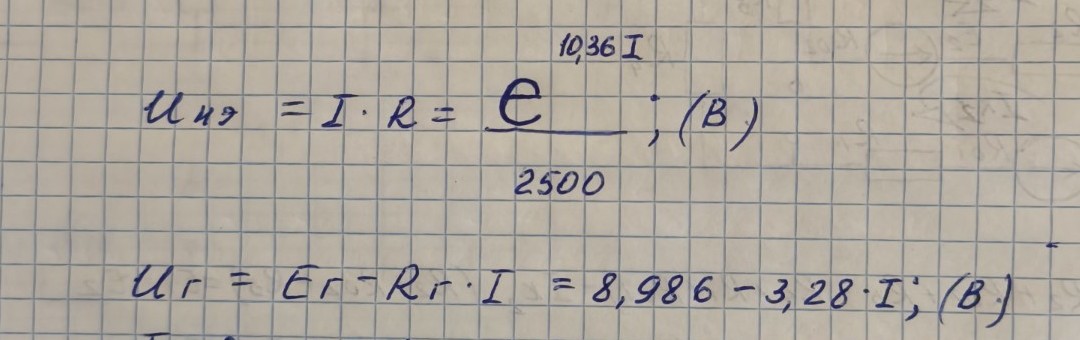 Uнэ = I · R = e^10,36 I / 2500 ; (В)
Uг = Eг - Rг · I = 8,986 - 3,28 · I; (В)